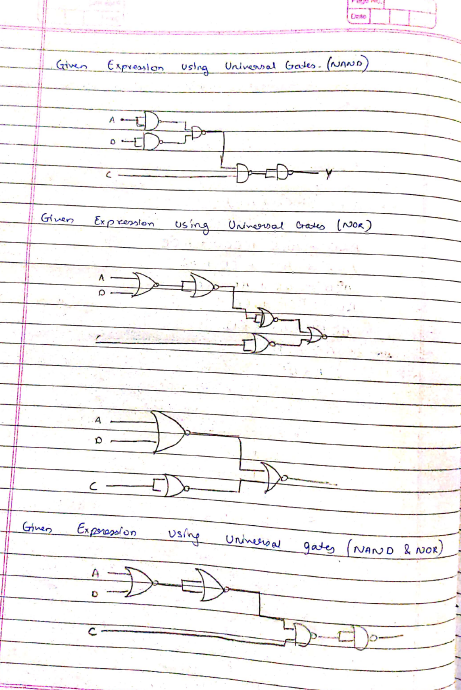 Page No.
Date
Given Expression using Universal Gates. (NAND)
A
D
C
Y
Given Expression using Universal Gates (NOR)
A
D
A
D
C
Given Expression using Universal gates (NAND & NOR)
A
D
C